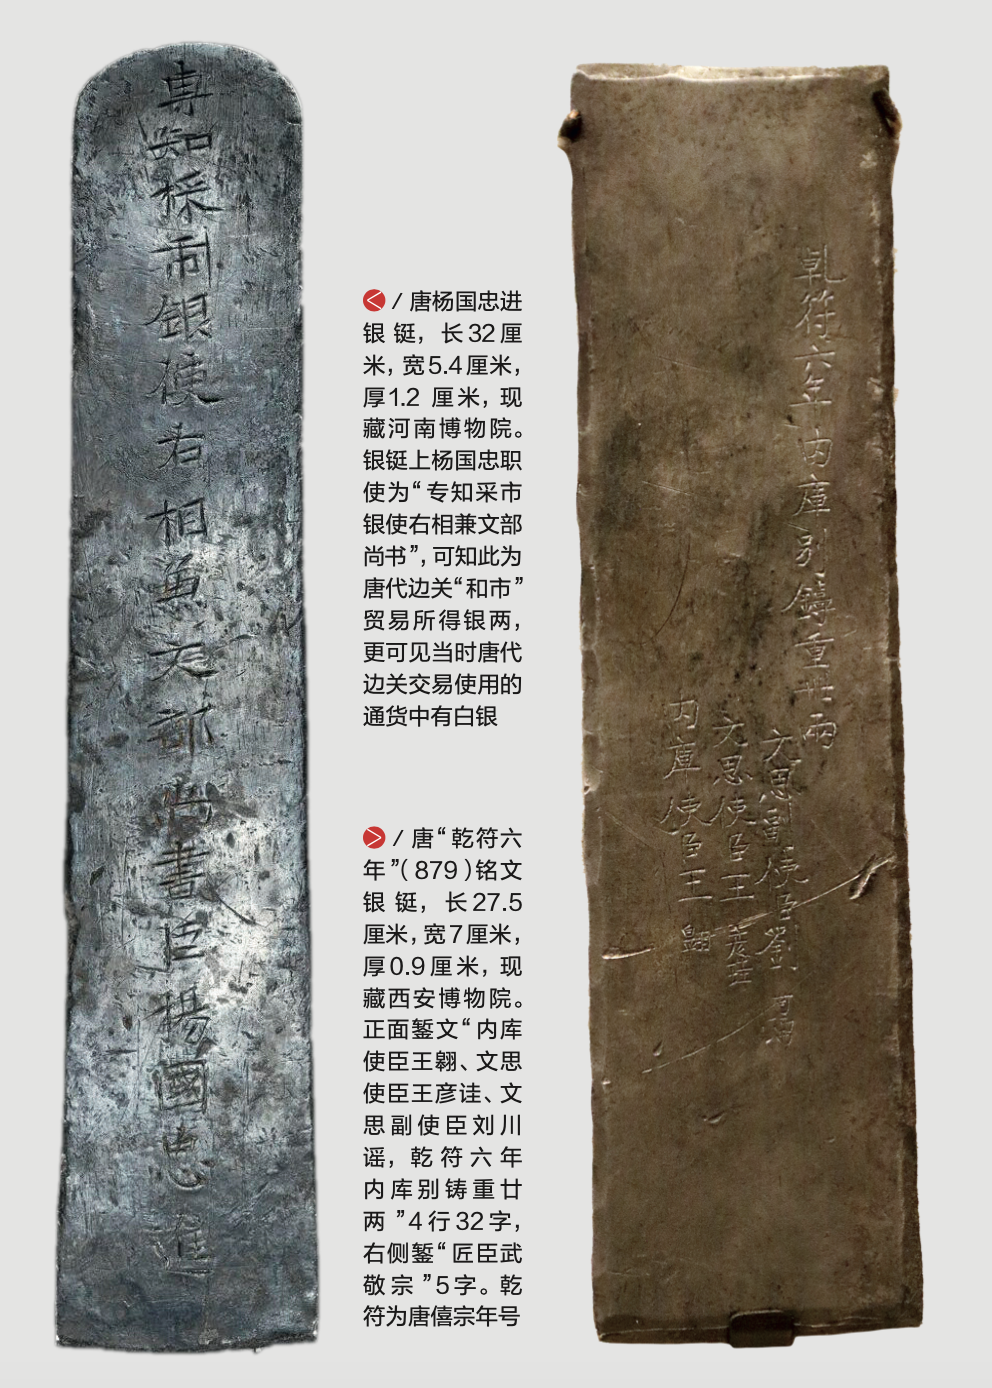 專知採市銀使右相兼文部尚書臣楊國忠進
< / 唐杨国忠进
银 铤，长32厘
米，宽5.4厘米，
厚1.2 厘米，现
藏河南博物院。
银铤上杨国忠职
使为“专知采市
银使右相兼文部
尚书”，可知此为
唐代边关“和市”
贸易所得银两，
更可见当时唐代
边关交易使用的
通货中有白银
> / 唐“乾符六
年”（879）铭文
银 铤，长27.5
厘米，宽7厘米，
厚0.9厘米，现
藏西安博物院。
正面錾文“内库
使臣王翱、文思
使臣王彦诖、文
思副使臣刘川
谣，乾符六年
内库别铸重廿
两 ”4行32字，
右侧錾“匠臣武
敬宗 ”5字。乾
符为唐僖宗年号
乾符六年内庫别鑄重廿兩
文思副使臣劉
文思使臣王彦
内庫使臣王翱